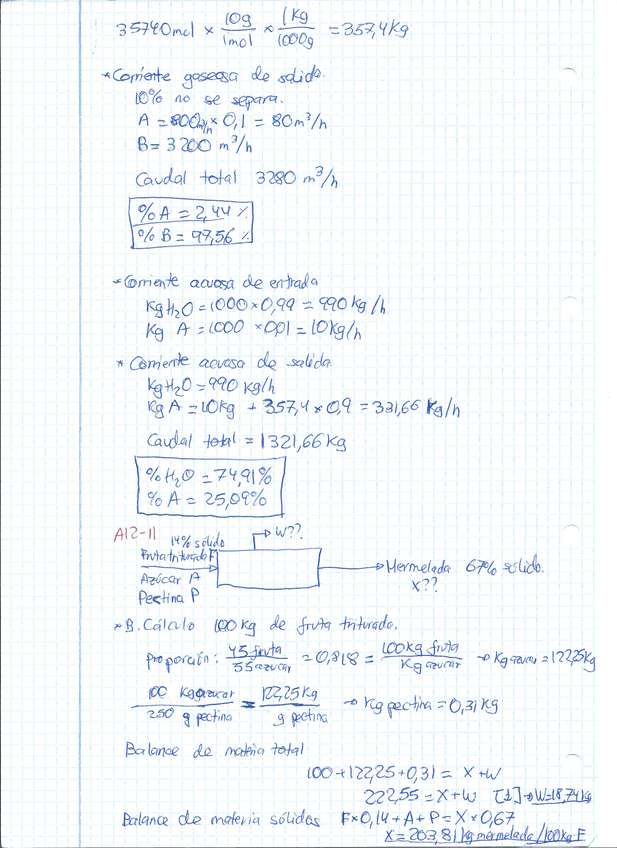 35740mol × 10g/1mol × 1Kg/1000g = 357,4Kg
* Corriente gaseosa de salida.
10% no se separa.
A = 800m³/h × 0,1 = 80 m³/h
B = 3200 m³/h
Caudal total 3280 m³/h
% A = 2,44 %
% B = 97,56 %
* Corriente acuosa de entrada
Kg H₂O = 1000 × 0,99 = 990 Kg/h
Kg A = 1000 × 0,01 = 10 Kg/h
* Corriente acuosa de salida
Kg H₂O = 990 Kg/h
Kg A = 10Kg + 357,4 × 0,9 = 331,66 Kg/h
Caudal total = 1321,66 Kg
% H₂O = 74,91%
% A = 25,09%
A12-11
14% sólido
W??
Fruta triturada F
Azúcar A
Pectina P
Mermelada 67% sólido.
X??
* B. Cálculo 100 Kg de fruta triturada.
Proporción: 45 fruta/55 azucar = 0,818 = 100Kg fruta/Kg azucar → Kg azucar = 122,25Kg
100 Kg azucar/250 g pectina = 122,25 Kg/g pectina → Kg pectina = 0,31 Kg
Balance de materia total
100 + 122,25 + 0,31 = X + W
222,55 = X + W [1] → W = 18,74 Kg
Balance de materia sólidos F × 0,14 + A + P = X × 0,67
X = 203,81 Kg mermelada/100Kg F